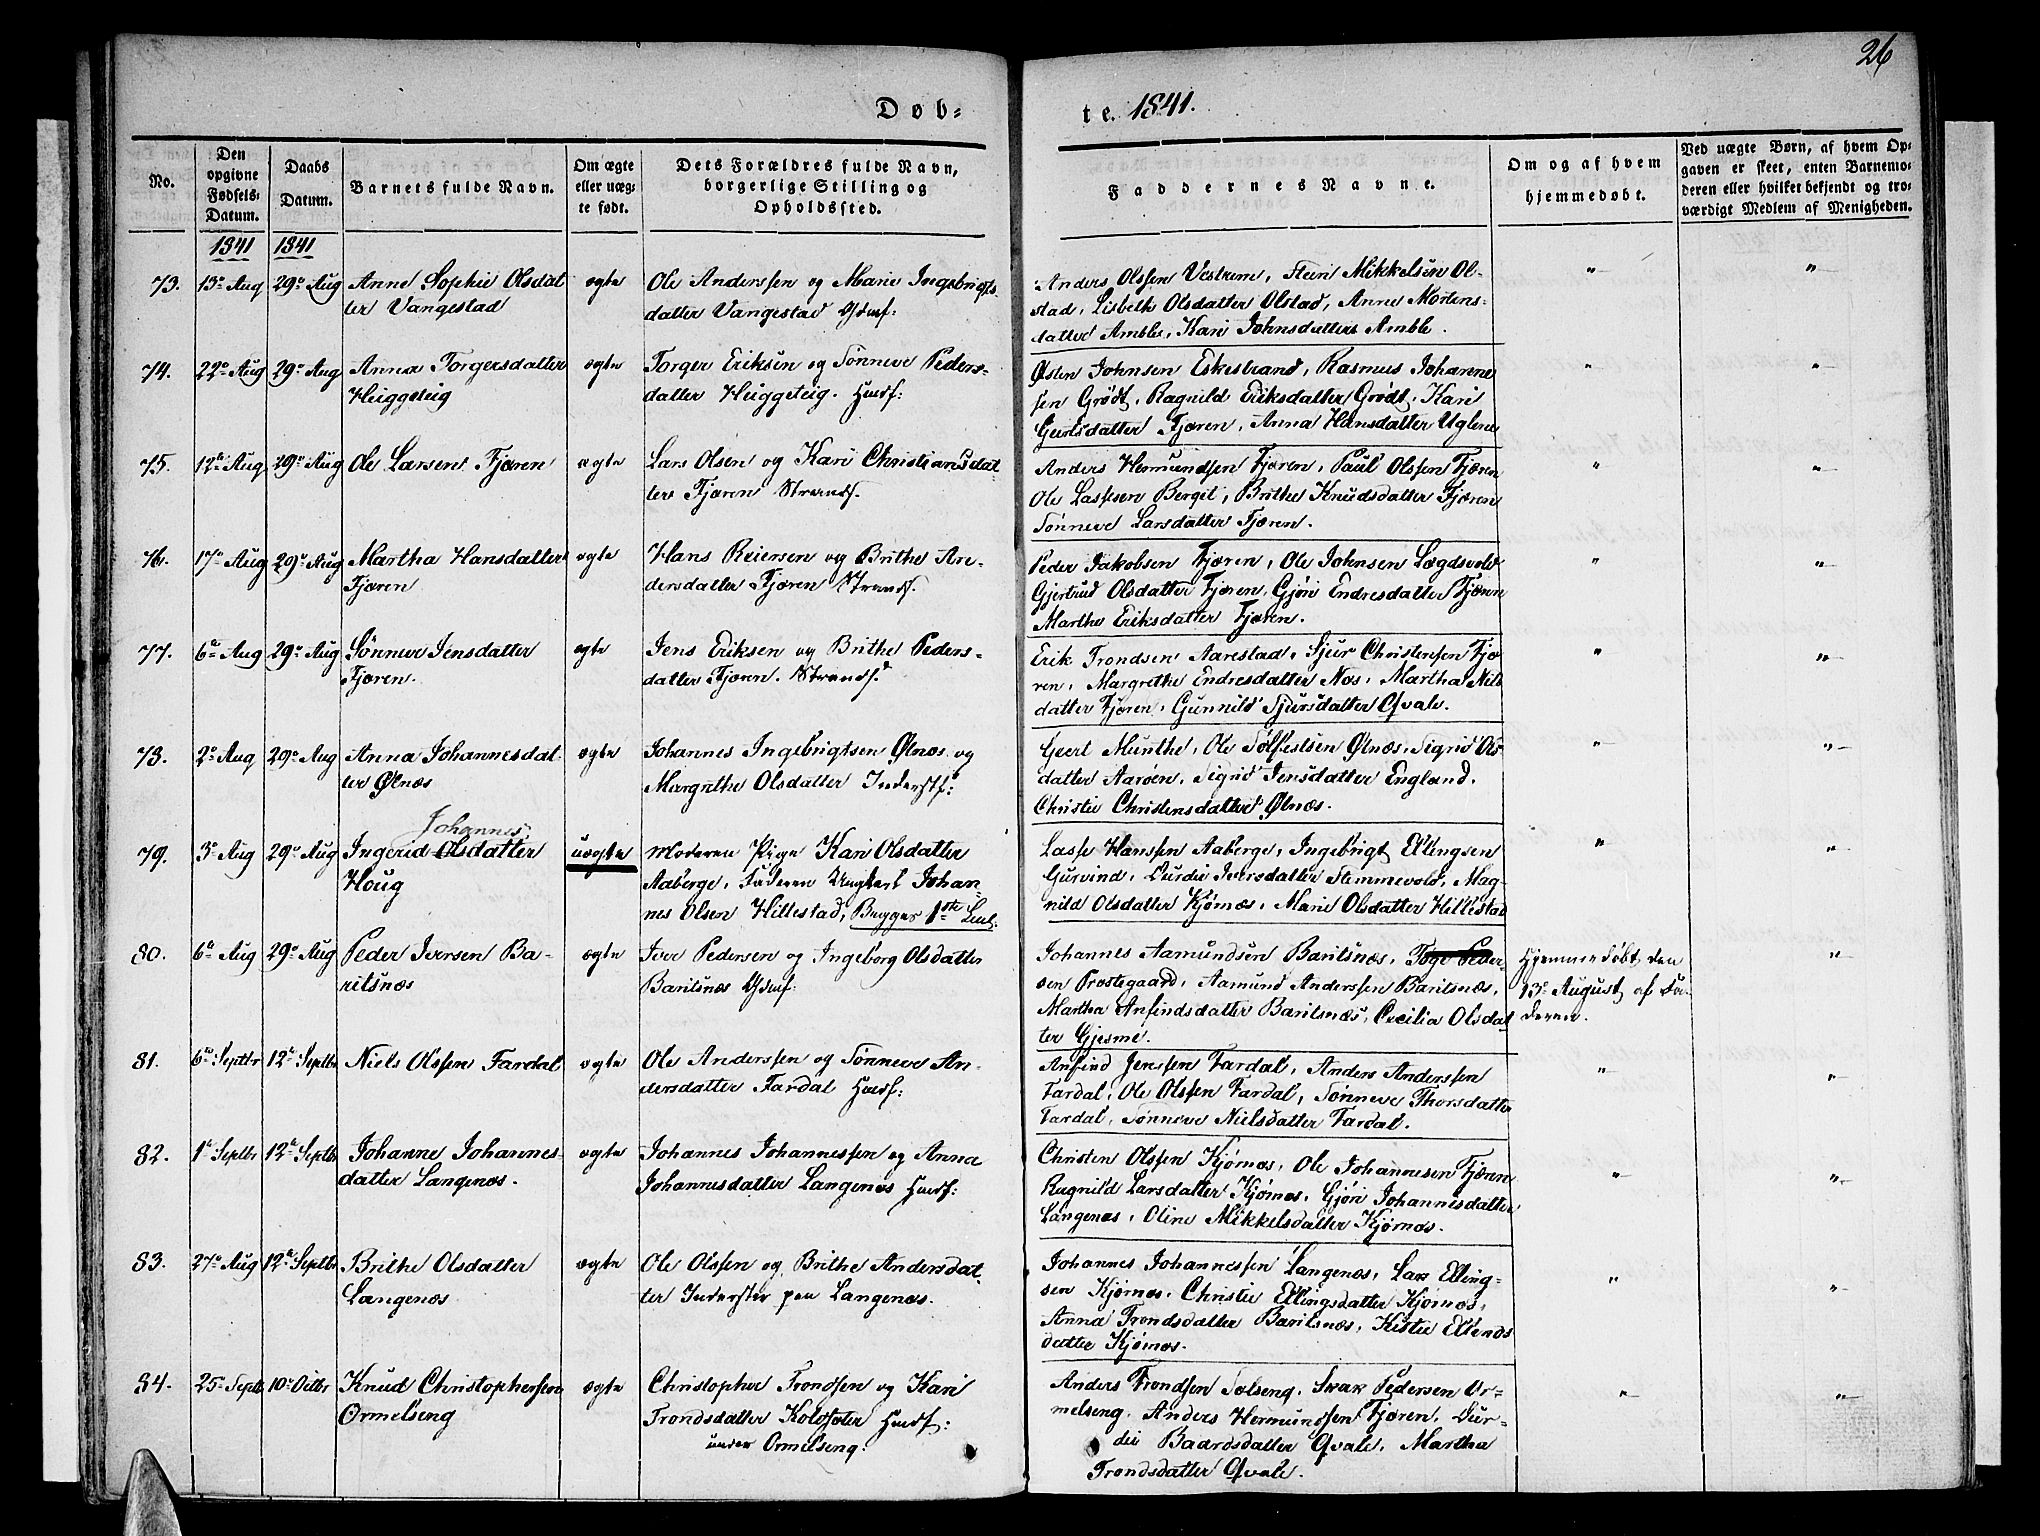 26
Døb-
te. 1841.
No.
Den opgivne Fødsels-Datum.
Daabs Datum.
Barnets fulde Navn.
Om ægte eller uæg-te født.
Dets Forældres fulde Navn, borgerlige Stilling og Opholdssted.
Faddernes Navne.
Om og af hvem hjemmedøbt.
Ved uægte Børn, af hvem Op-
gaven er skeet, enten Barnemo-
deren eller hvilket bekjendt og tro-
værdigt Medlem af Menigheden.
1841 1841
73. 13e Aug 29e Aug Anne Sophie Olsdat ægte Ole Anderssen og Marie Ingebrigts
ter Vangestad datter Vangestad Gbmf:
Anders Olssen Vestrem, Steen Mikkelsen Ol- " "
stad, Lisbeth Olsdatter Olstad, Anne Mortens-
datter Amble, Kari Johnsdatter Amble.
74. 22e Aug 29e Aug Anna Torgersdatter ægte Torger Eriksen og Sønneve Peders-
Heiggeteig datter Heiggeteig. Husf:
Østen Johnsen Eskestrand, Rasmus Johanne " "
sen Grødt, Ragnild Eriksdatter Grødt, Kari
Geertsdatter Fjæren, Anna Hansdatter Uglene
75. 12e Aug 29e Aug Ole Larsen Fjæren ægte Lars Olsen og Kari Christiansdat
ter Fjæren Strandf.
Anders Hermundsen Fjæren, Paul Olssen Fjæren " "
Ole Lassesen Berget, Brithe Knudsdatter Fjæren
Sønneve Larsdatter Fjæren.
76. 17e Aug 29e Aug Martha Hansdatter ægte Hans Reiersen og Brithe An-
Fjæren dersdatter Fjæren Strandf.
Peder Jakobsen Fjæren, Ole Johnsen Lægdsvold " "
Gjertrud Olsdatter Fjæren, Gjøri Endresdatter Fjæren
Marthe Eriksdatter Fjæren.
77. 6te Aug 29e Aug Sønneve Jensdatter ægte Jens Eriksen og Brithe Peders-
Fjæren. datter Fjæren. Strandf.
Erik Trondsen Aarestad, Sjur Christensen Fjæ " "
ren, Margrethe Endresdatter Næs, Martha Nils
datter Fjæren, Gunnild Sjursdatter Qvale.
78. 2e Aug 29e Aug Anna Johannesdat- ægte Johannes Ingebrigtsen Ølnæs og
ter Ølnæs Margrethe Olsdatter Inderstf:
Geert Munthe, Ole Sølfestsen Ølnæs, Sigrid Ols " "
datter Aarøen, Sigrid Jensdatter Engeland,
Christie Christensdatter Ølnæs.
Johannes
79. 3e Aug 29e Aug Ingerid Olsdatter uægte Moderen Pige Kari Olsdatter
Houg Aaberge, Faderen Ungkarl Johan-
nes Olsen Hillestad, Begges 1ste Leir
Lasse Hanssen Aaberge, Ingebrigt Ellingsen " "
Gurvind, Durdei Iversdatter Stemmevold, Mag-
nild Olsdatter Kjørnæs, Marie Olsdatter Hillestad
80. 6te Aug 29e Aug Peder Iversen Ba- ægte Iver Pedersen og Ingeborg Olsdatter
ritsnæs Baritsnæs Gbmf:
Johannes Aamundsen Baritsnæs, Peder- Hjemmedøbt den "
sen Prostegaard, Aamund Anderssen Baritsnæs, 13e August af Fa-
Martha Anfindsdatter Baritsnæs, Cecilia Olsdat deren.
ter Gjesme.
81. 6te Septbr 12te Septbr Niels Olssen Fardal ægte Ole Anderssen og Sønneve An-
dersdatter Fardal Husf:
Anfind Jenssen Fardal, Anders Anderssen " "
Fardal, Ole Olssen Fardal, Sønneve Thorsdatter
Fardal, Sønneve Nielsdatter Fardal.
82. 1e Septbr 12te Septbr Johanne Johannes- ægte Johannes Johannessen og Anna
datter Langenæs. Johannesdatter Langenæs Husf:
Christen Olssen Kjørnæs, Ole Johannesen Fjæren " "
Ragnild Larsdatter Kjørnæs, Gjøri Johannesdatter
Langenæs, Oline Mikkelsdatter Kjørnæs.
83. 27e Aug 12te Septbr Brithe Olsdatter ægte Ole Olssen og Brithe Andersdat
Langenæs ter Inderster paa Langenæs.
Johannes Johannessen Langenæs, Lars Elling- " "
sen Kjørnæs, Christie Ellingsdatter Kjørnæs,
Anna Trondsdatter Baritsnæs, Kistie Ellends
datter Kjørnæs.
84. 25e Septb 10e Octbr Knud Christophersen ægte Christopher Trondssen og Kari
Ormelseng Trondsdatter Koldsæter Husf:
under Ormelseng.
Anders Trondsen Solseng, Ivar Pedersen Or- " "
melseng, Anders Hermundssen Fjæren, Dur-
dei Baardsdatter Qvale, Martha
Trondsdatter Qvale.